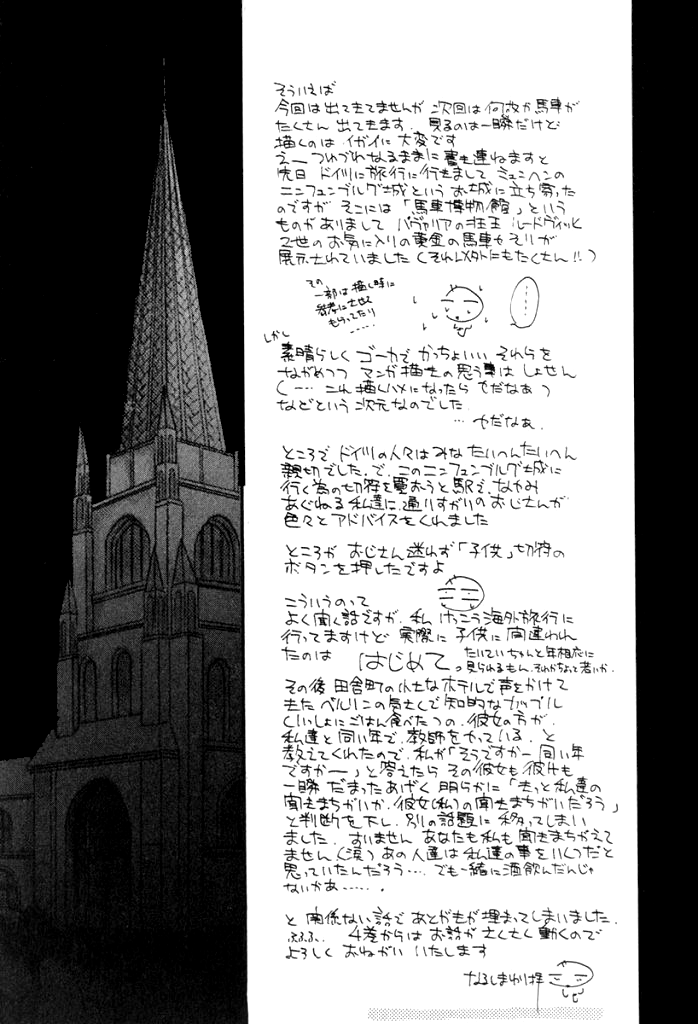 そういえば
今回は出てきてませんが 次回は何故か馬車が
たくさん 出てきます。見るのは一瞬だけど
描くのは イガイに 大変です
えー つれづれなるままに 書き連ねますと
先日 ドイツに旅行に行きまして ミュンヘンの
ニンフェンブルグ城という お城に立ち寄った
のですが そこには「馬車博物館」という
ものがありまして バヴァリアの狂王 ルードヴィッヒ
2世のお気に入りの黄金の馬車やそりが
展示されていました(それ以外にもたくさん!!)
その
一部は描く時に
参考にさせて
もらってたり
……
しかし
素晴らしく ゴーカで かっちょいい それらを
ながめつつ マンガ描きの思う事は しょせん
(…… これ描くハメになったら やだなあ)
などという 次元なのでした
… やだなあ。
ところで、ドイツの人々はみな たいへんたいへん
親切でした。で、このニンフェンブルグ城に
行く為の切符を買おうと駅で、なやみ
あぐねる私達に、通りすがりのおじさんが
色々とアドバイスをくれました
ところが おじさん迷わず「子供」切符の
ボタンを押したですよ
こういうのって
よく聞く話ですが、私 けっこう海外旅行に
行ってますけど 実際に 子供に間違われ
たのは はじめて。 たいていちゃんと年相応に
見られるもん。それかちょっと若いか。
その後 田舎町の小さなホテルで声をかけて
きた ベルリンの気さくで知的なカップル
(いっしょにごはん食べたっつの)の彼女の方が、
私達と同い年で、教師をやっている、と
教えてくれたので、私が「そうですかー 同い年
ですかー」と答えたら その彼女も 彼氏も
一瞬 だまったあげく 明らかに「きっと私達の
聞きまちがいか、彼女(私)の聞きまちがいだろう」
と判断を下し、別の話題に移ってしまい
ました。すいません あなたも私も聞きまちがえて
ません(涙) あの人達は 私達の事をいくつだと
思っていたんだろう…。でも一緒に酒飲んだじゃ
ないかあ……。
と 関係ない話で あとがきが埋まってしまいました。
ふふふ。 4巻からは お話がさくさく動くので
よろしく おねがい いたします
なるしまゆり拝